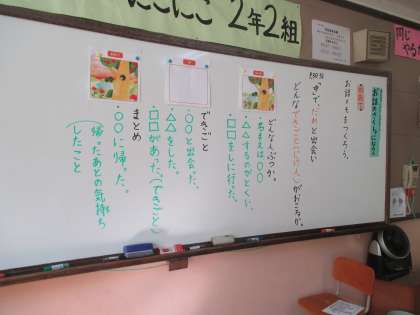 にこにこ 2年2組
同じ
お話のさくしゃになろう
お話の「　」をつくろう。
「き」で、だれと出会い
どんな「できごと(じけん)」がおこるか。
どんな人ぶつか。
・名まえは○○
・△△するのがとくい
・□□をしに行った。
できごと
・○○と出会った。
・△△をした。
・□□があった。(できごと)
まとめ
・○○に帰った。
・帰ったあとの気持ち
したこと